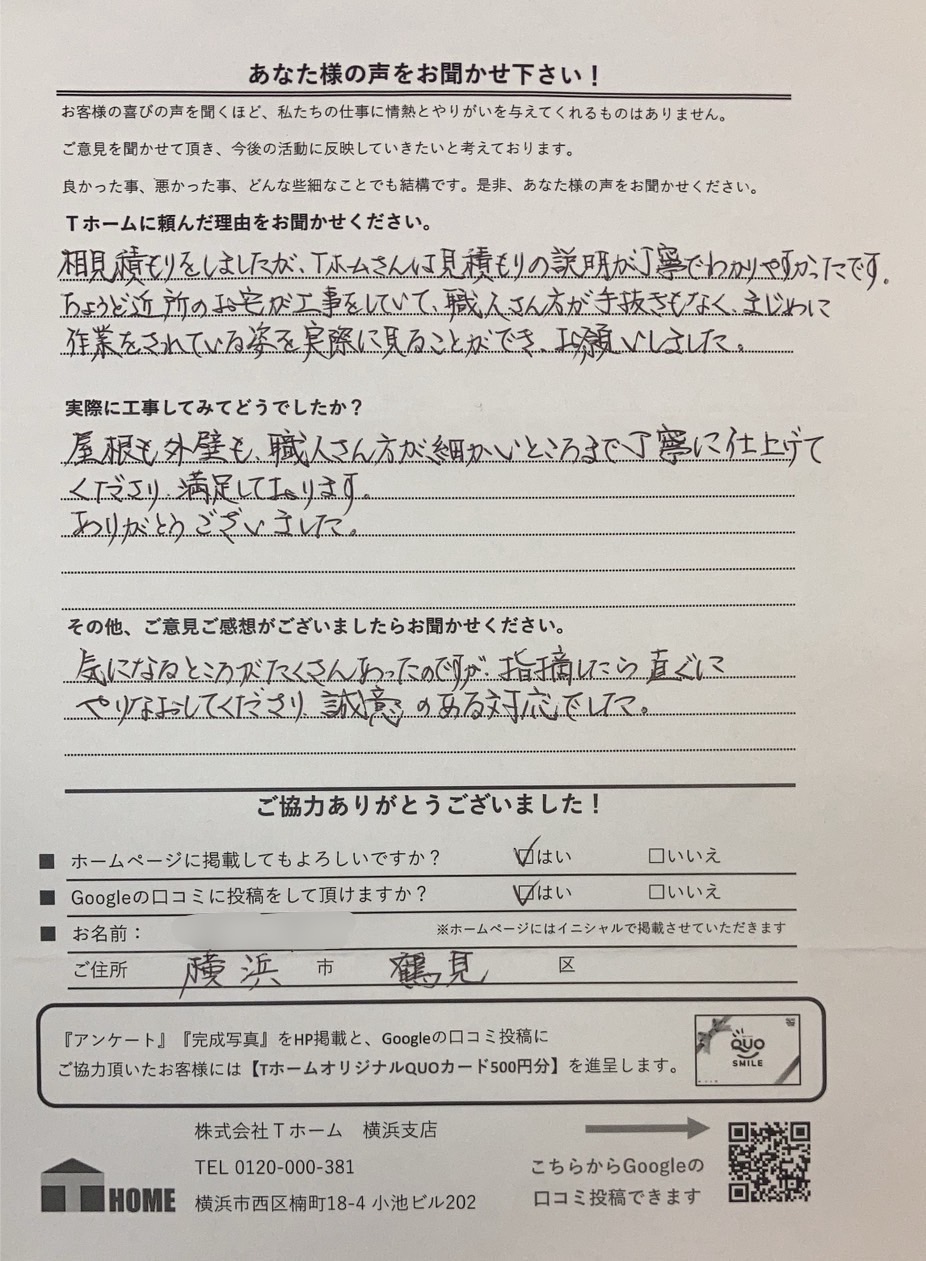 あなた様の声をお聞かせ下さい！
お客様の喜びの声を聞くほど、私たちの仕事に情熱とやりがいを与えてくれるものはありません。
ご意見を聞かせて頂き、今後の活動に反映していきたいと考えております。
良かった事、悪かった事、どんな些細なことでも結構です。是非、あなた様の声をお聞かせください。
Tホームに頼んだ理由をお聞かせください。
相見積もりをしましたが、Tホームさんは見積もりの説明が丁寧でわかりやすかったです。
ちょうど近所のお宅が工事をしていて、職人さん方が手抜きもなく、まじめに
作業をされている姿を実際に見ることができ、お願いしました。
実際に工事してみてどうでしたか？
屋根も外壁も、職人さん方が細かいところまで丁寧に仕上げて
くださり、満足しております。
ありがとうございました。
その他、ご意見ご感想がございましたらお聞かせください。
気になるところがたくさんあったのですが、指摘したら直ぐに
やりなおしてくださり、誠意のある対応でした。
ご協力ありがとうございました！
■ ホームページに掲載してもよろしいですか？ ☑はい □いいえ
■ Googleの口コミに投稿をして頂けますか？ ☑はい □いいえ
■ お名前： ※ホームページにはイニシャルで掲載させていただきます
ご住所 横浜 市 鶴見 区
『アンケート』『完成写真』をHP掲載と、Googleの口コミ投稿に
ご協力頂いたお客様には【TホームオリジナルQUOカード500円分】を進呈します。
QUO
SMILE
株式会社Tホーム 横浜支店
TEL 0120-000-381
横浜市西区楠町18-4 小池ビル202
T HOME
こちらからGoogleの
口コミ投稿できます